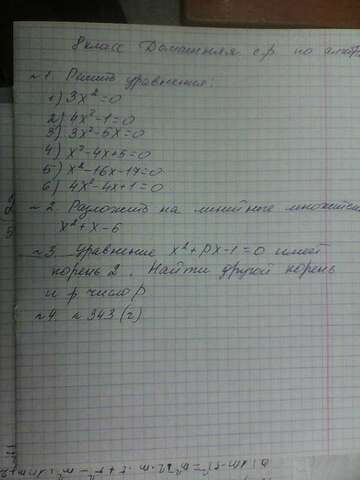 8 класс Домашняя с.р. по алгебр
№1. Решить уравнения:
1) 3x²=0
2) 4x²-1=0
3) 3x²-5x=0
4) x²-4x+5=0
5) x²-16x-17=0
6) 4x²-4x+1=0
№2. Разложить на линейные множител
x²+x-6
№3. Уравнение x²+px-1=0 имеет
корень 2. Найти другой корень
и число p
№4. №343(2)